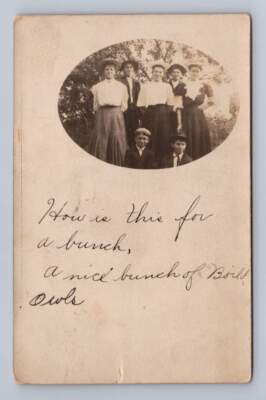 How is this for
a bunch,
a nice bunch of Boild
Owls